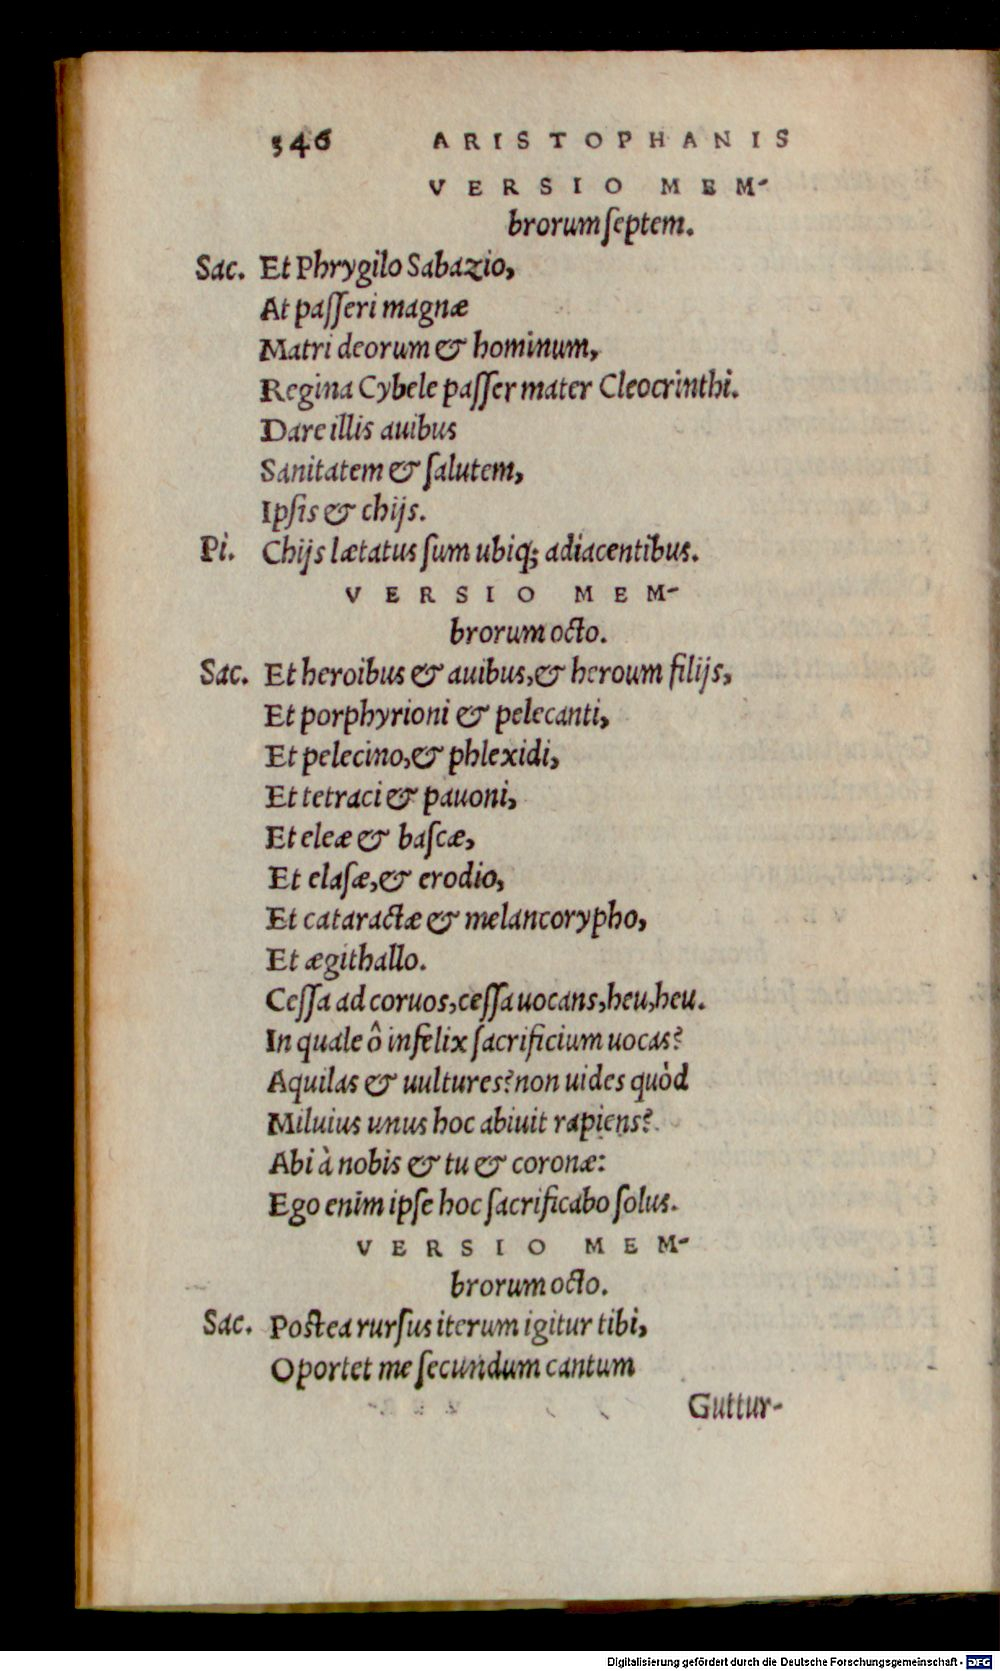 346 ARISTOPHANIS
VERSIO MEM-
brorum ſeptem.
Sac. Et Phrygilo Sabazio,
At paſſeri magnæ
Matri deorum & hominum,
Regina Cybele paſſer mater Cleocrinthi.
Dare illis auibus
Sanitatem & ſalutem,
Ipſis & chijs.
Pi. Chijs lætatus ſum ubiq; adiacentibus.
VERSIO MEM-
brorum octo.
Sac. Et heroibus & auibus,& heroum filijs,
Et porphyrioni & pelecanti,
Et pelecino,& phlexidi,
Et tetraci & pauoni,
Et eleæ & baſcæ,
Et elaſæ,& erodio,
Et cataractæ & melancorypho,
Et ægithallo.
Ceſſa ad coruos,ceſſa uocans,heu,heu.
In quale ô infelix ſacrificium uocas?
Aquilas & uultures?non uides quòd
Miluius unus hoc abiuit rapiens?
Abi à nobis & tu & coronæ:
Ego enim ipſe hoc ſacrificabo ſolus.
VERSIO MEM-
brorum octo.
Sac. Poſtea rurſus iterum igitur tibi,
Oportet me ſecundum cantum
Guttur-
Digitalisierung gefördert durch die Deutsche Forschungsgemeinschaft - DFG